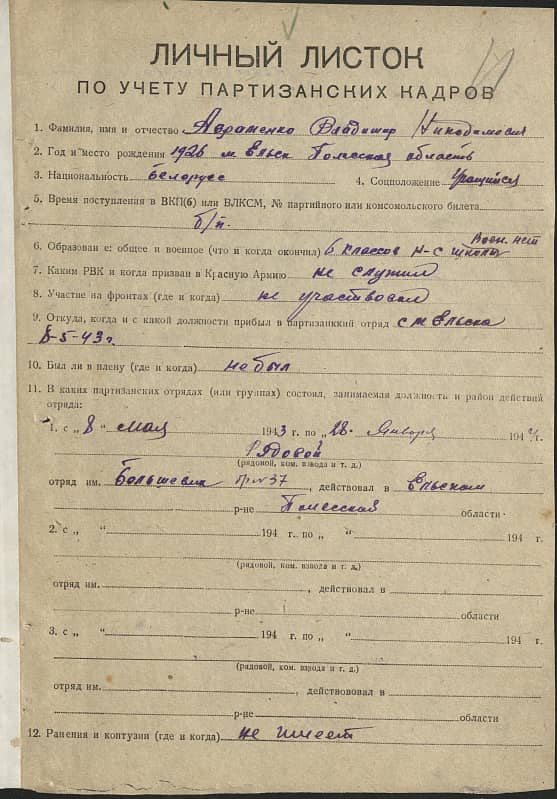 ЛИЧНЫЙ ЛИСТОК
ПО УЧЕТУ ПАРТИЗАНСКИХ КАДРОВ
1. Фамилия, имя и отчество Авраменко Владимир Никодимович
2. Год и место рождения 1926 м. Ельск Полесская область
3. Национальность белорусс 4. Соцположение Учащийся
5. Время поступления в ВКП(б) или ВЛКСМ, № партийного или комсомольского билета
б/п.
6. Образован е: общее и военное (что и когда окончил) 6 классов н-с школы Воен. нет
7. Каким РВК и когда призван в Красную Армию не служил
8. Участие на фронтах (где и когда) не участвовал
9. Откуда, когда и с какой должности прибыл в партизанкий отряд с м Ельска
8-5-43 г.
10. Был ли в плену (где и когда) не был
11. В каких партизанских отрядах (или группах) состоял, занимаемая должность и район действий
отряда:
1. с „ 8 “ мая 1943 г. по „ 28 “ Января 1944 г.
Рядовой
(рядовой, ком. взвода и т. д.)
отряд им. Большевик №37, действовал в Ельском
р-не Полесской области
2. с „ “ 194 г. по „ “ 194 г.
(рядовой, ком. взвода и т. д.)
отряд им. , действовал в
р-не области
3. с „ “ 194 г. по „ “ 194 г.
(рядовой, ком. взвода и т. д.)
отряд им. , действововал в
р-не области
12. Ранения и контузии (где и когда) не имеет